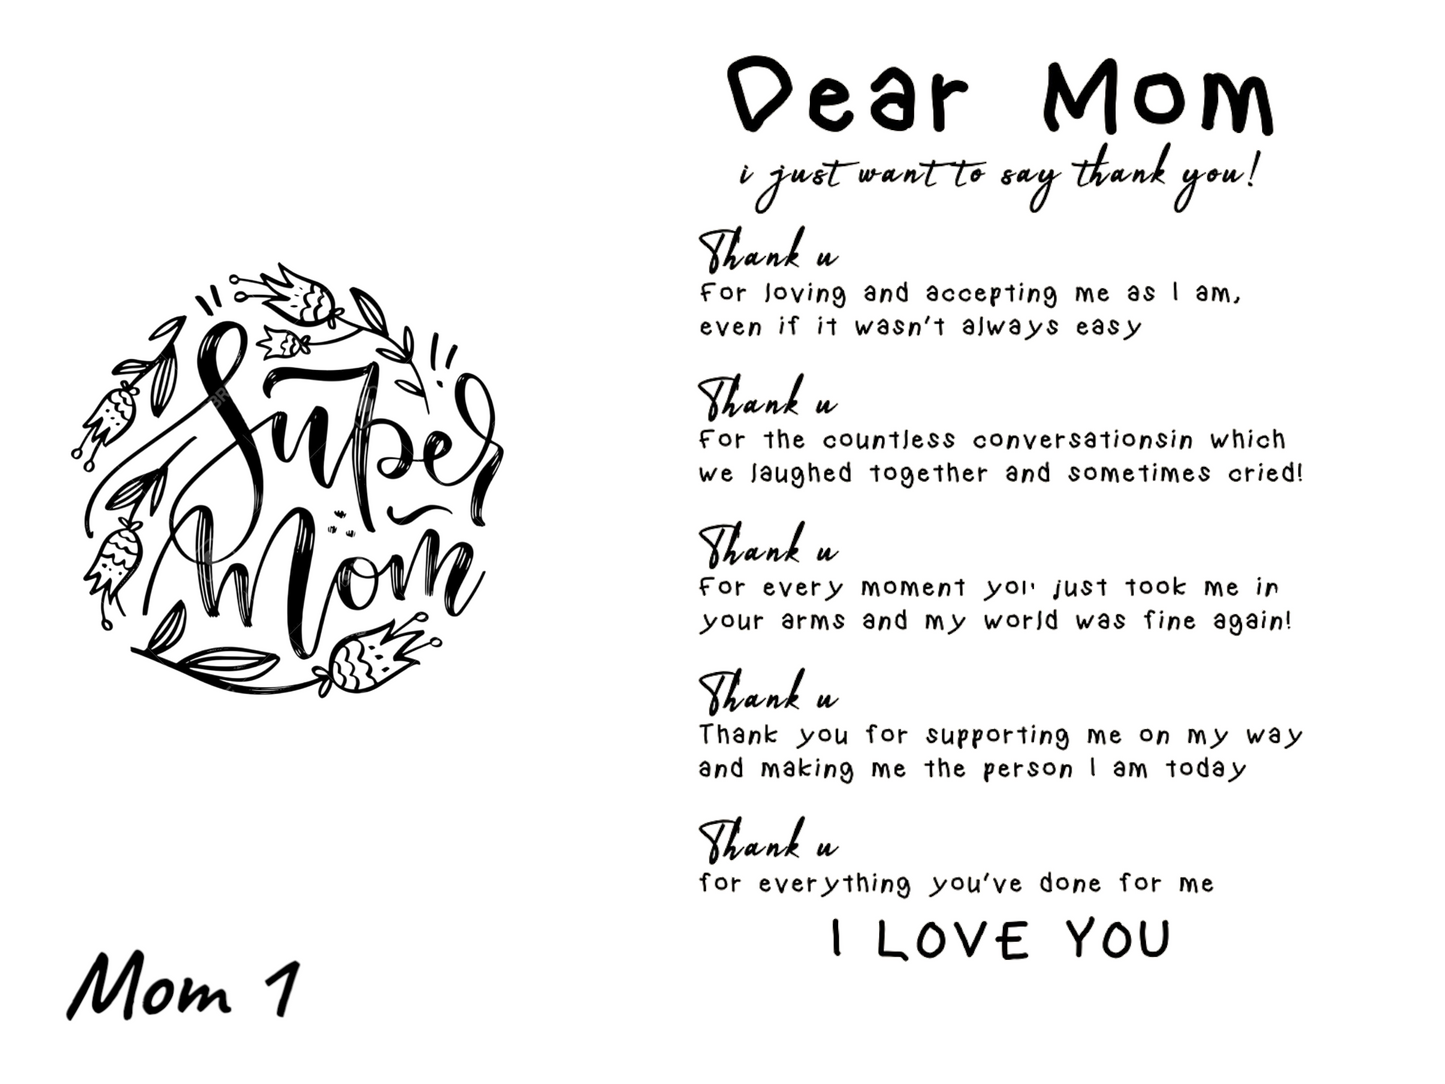 Super
Mom
Mom 1
Dear Mom
i just want to say thank you!
Thank u
For loving and accepting me as I am,
even if it wasn't always easy
Thank u
For the countless conversationsin which
we laughed together and sometimes cried!
Thank u
For every moment just took me in
your arms and my world was fine again!
Thank u
Thank you for supporting me on my way
and making me the person I am today
Thank u
for everything you've done for me
I LOVE YOU